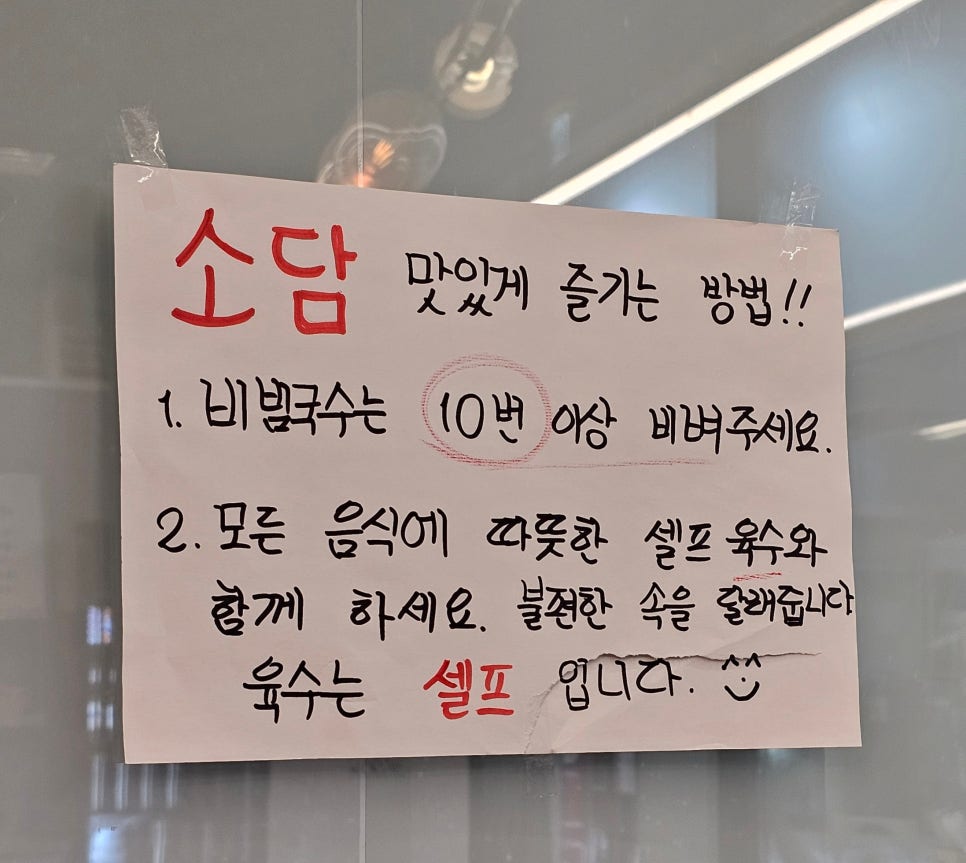 소담 맛있게 즐기는 방법!!
1. 비빔국수는 10번 이상 비벼주세요.
2. 모든 음식에 따뜻한 셀프 육수와
함께 하세요. 불편한 속을 달래줍니다
육수는 셀프 입니다. ^^